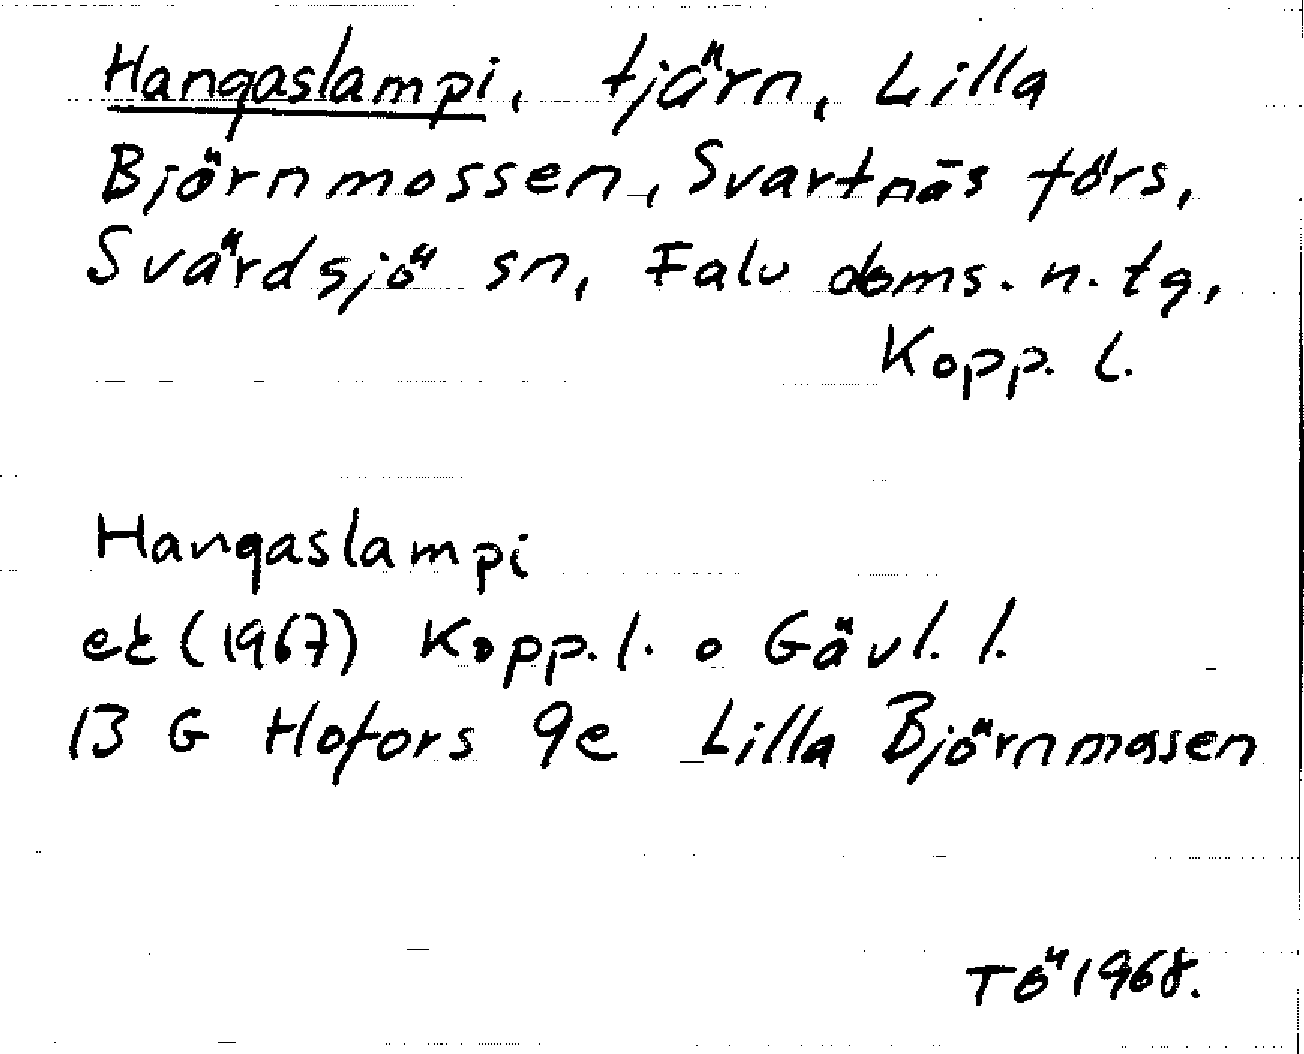 Hangaslampi, tjärn, Lilla
Björnmossen, Svartnäs förs,
Svärdsjö sn, Falu doms. n. tg,
Kopp. l.
Hangaslampi
ek (1967) Kopp. l. o Gävl. l.
13 G Hofors 9e Lilla Björnmossen
TÖ 1968.